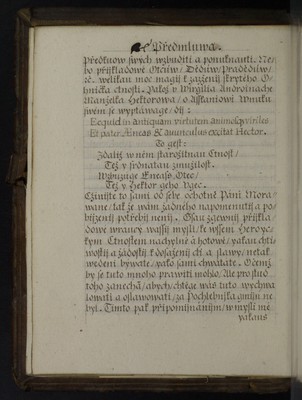 Předmluwa.
Předkuow swych wzbuditi a ponuknauti. Ne
bo przikladowé Otcuw / Děduw / Praděduw /
welikau moc magij k zažženij skrytého O-
hnička ctnosti. Yakož v Wirgilia Andromache
Manželka Hektorowa / o Askaniowi Wnuku
swém se wyptáwagic / dij:
Ecquid in antiquam virtutem animosq; viriles
Et pater Aeneas & avunculus excitat Hector.
To gest:
Zdaliž w něm starožitnau Ctnost /
Též y srdnatau zmužilost,
Wzbuzuge Eneáss Otec /
Též y Hektor geho Ugec.
Cžiníte to sami od sebe ochotně Páni Mora-
wané / tak že wám žádného napomenutij a po-
bijzenij potřebij nenij.
dowé wraucý wassij mysli / ke wssem Heroyc-
kým Ctnostem nachylné a hotowé / yakau chti-
wostij a žádostij k dosaženij cti a sláwy / netak
wedeni býwáte / yako sami chwátáte. O čemž
by se tuto mnoho prawiti mohlo / Ale pro slusso
toho zanechá / abych / chtěge wás tuto wychwa-
lowati a oslawowati / za Pochlebnijka gmijn ne-
byl. Tijmto pak připomijnánijm / w mysli mé
yakaus